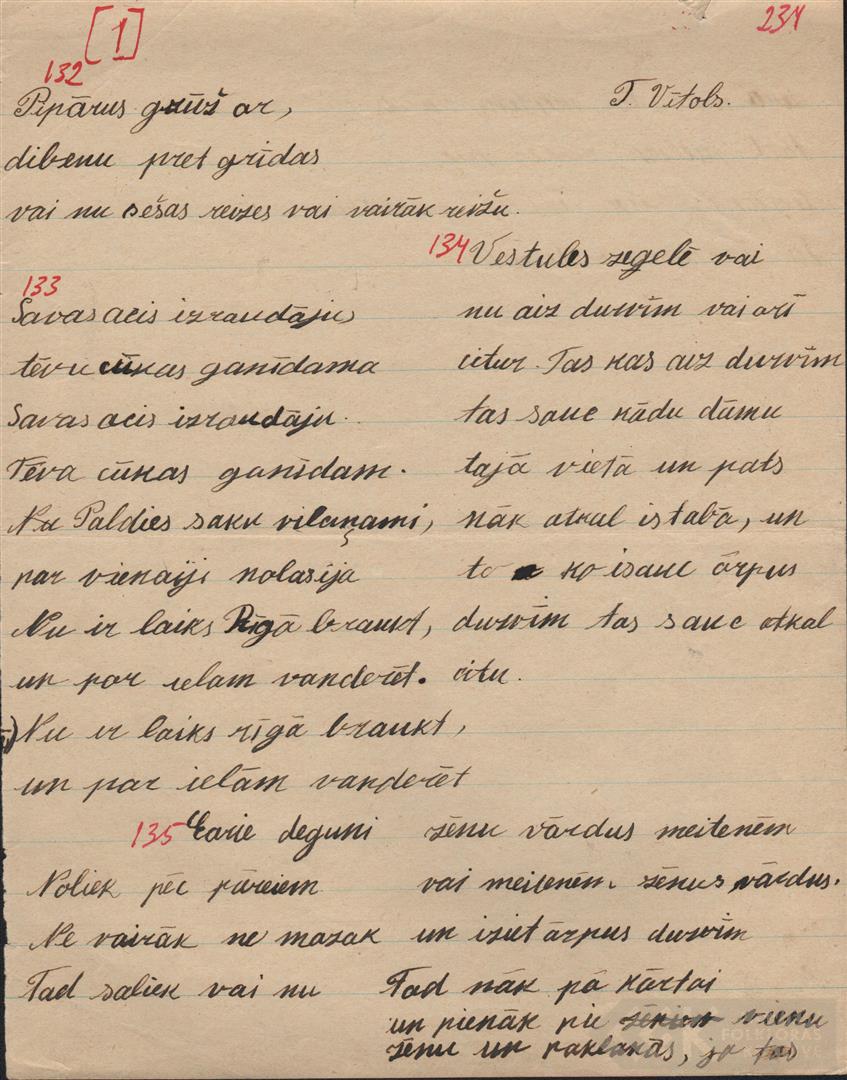 [1]
231
132
T. Vītols.
Pipārus grūž ar,
dibenu pret grīdas
vai nu sešas reizes vai vairāk reižu.
133
Savas acis izraudāju,
tēvu cūkas ganīdama
Savas acis izraudāju.
Tēva cūkas ganīdam.
Nu Paldies saku vilcņami,
par vienaiji nolasīja
Nu ir laiks Rīgā braukt,
un par ielam vanderēt.
Nu ir laiks rīgā braukt,
un par ielām vanderēt
134 Vestules zegelē vai
nu aiz durvīm vai arī
citur. Tas kas aiz durvīm
tas sauc kādu dāmu
tajā vietā un pats
nāk atkal istabā, un
to ko isauc ārpus
durvīm tas sauc atkal
citu.
135 Garie deguni
Noliek pēc pāreiem
Ne vairāk ne mazak
Tad saliek vai nu
zēnu vārdus meitenēm
vai meitenēm zēnus vārdus.
un iziet ārpus durvīm
Tad nāk pā kārtai
un pienāk pie vienu
zēnu un paklanās, ja tas